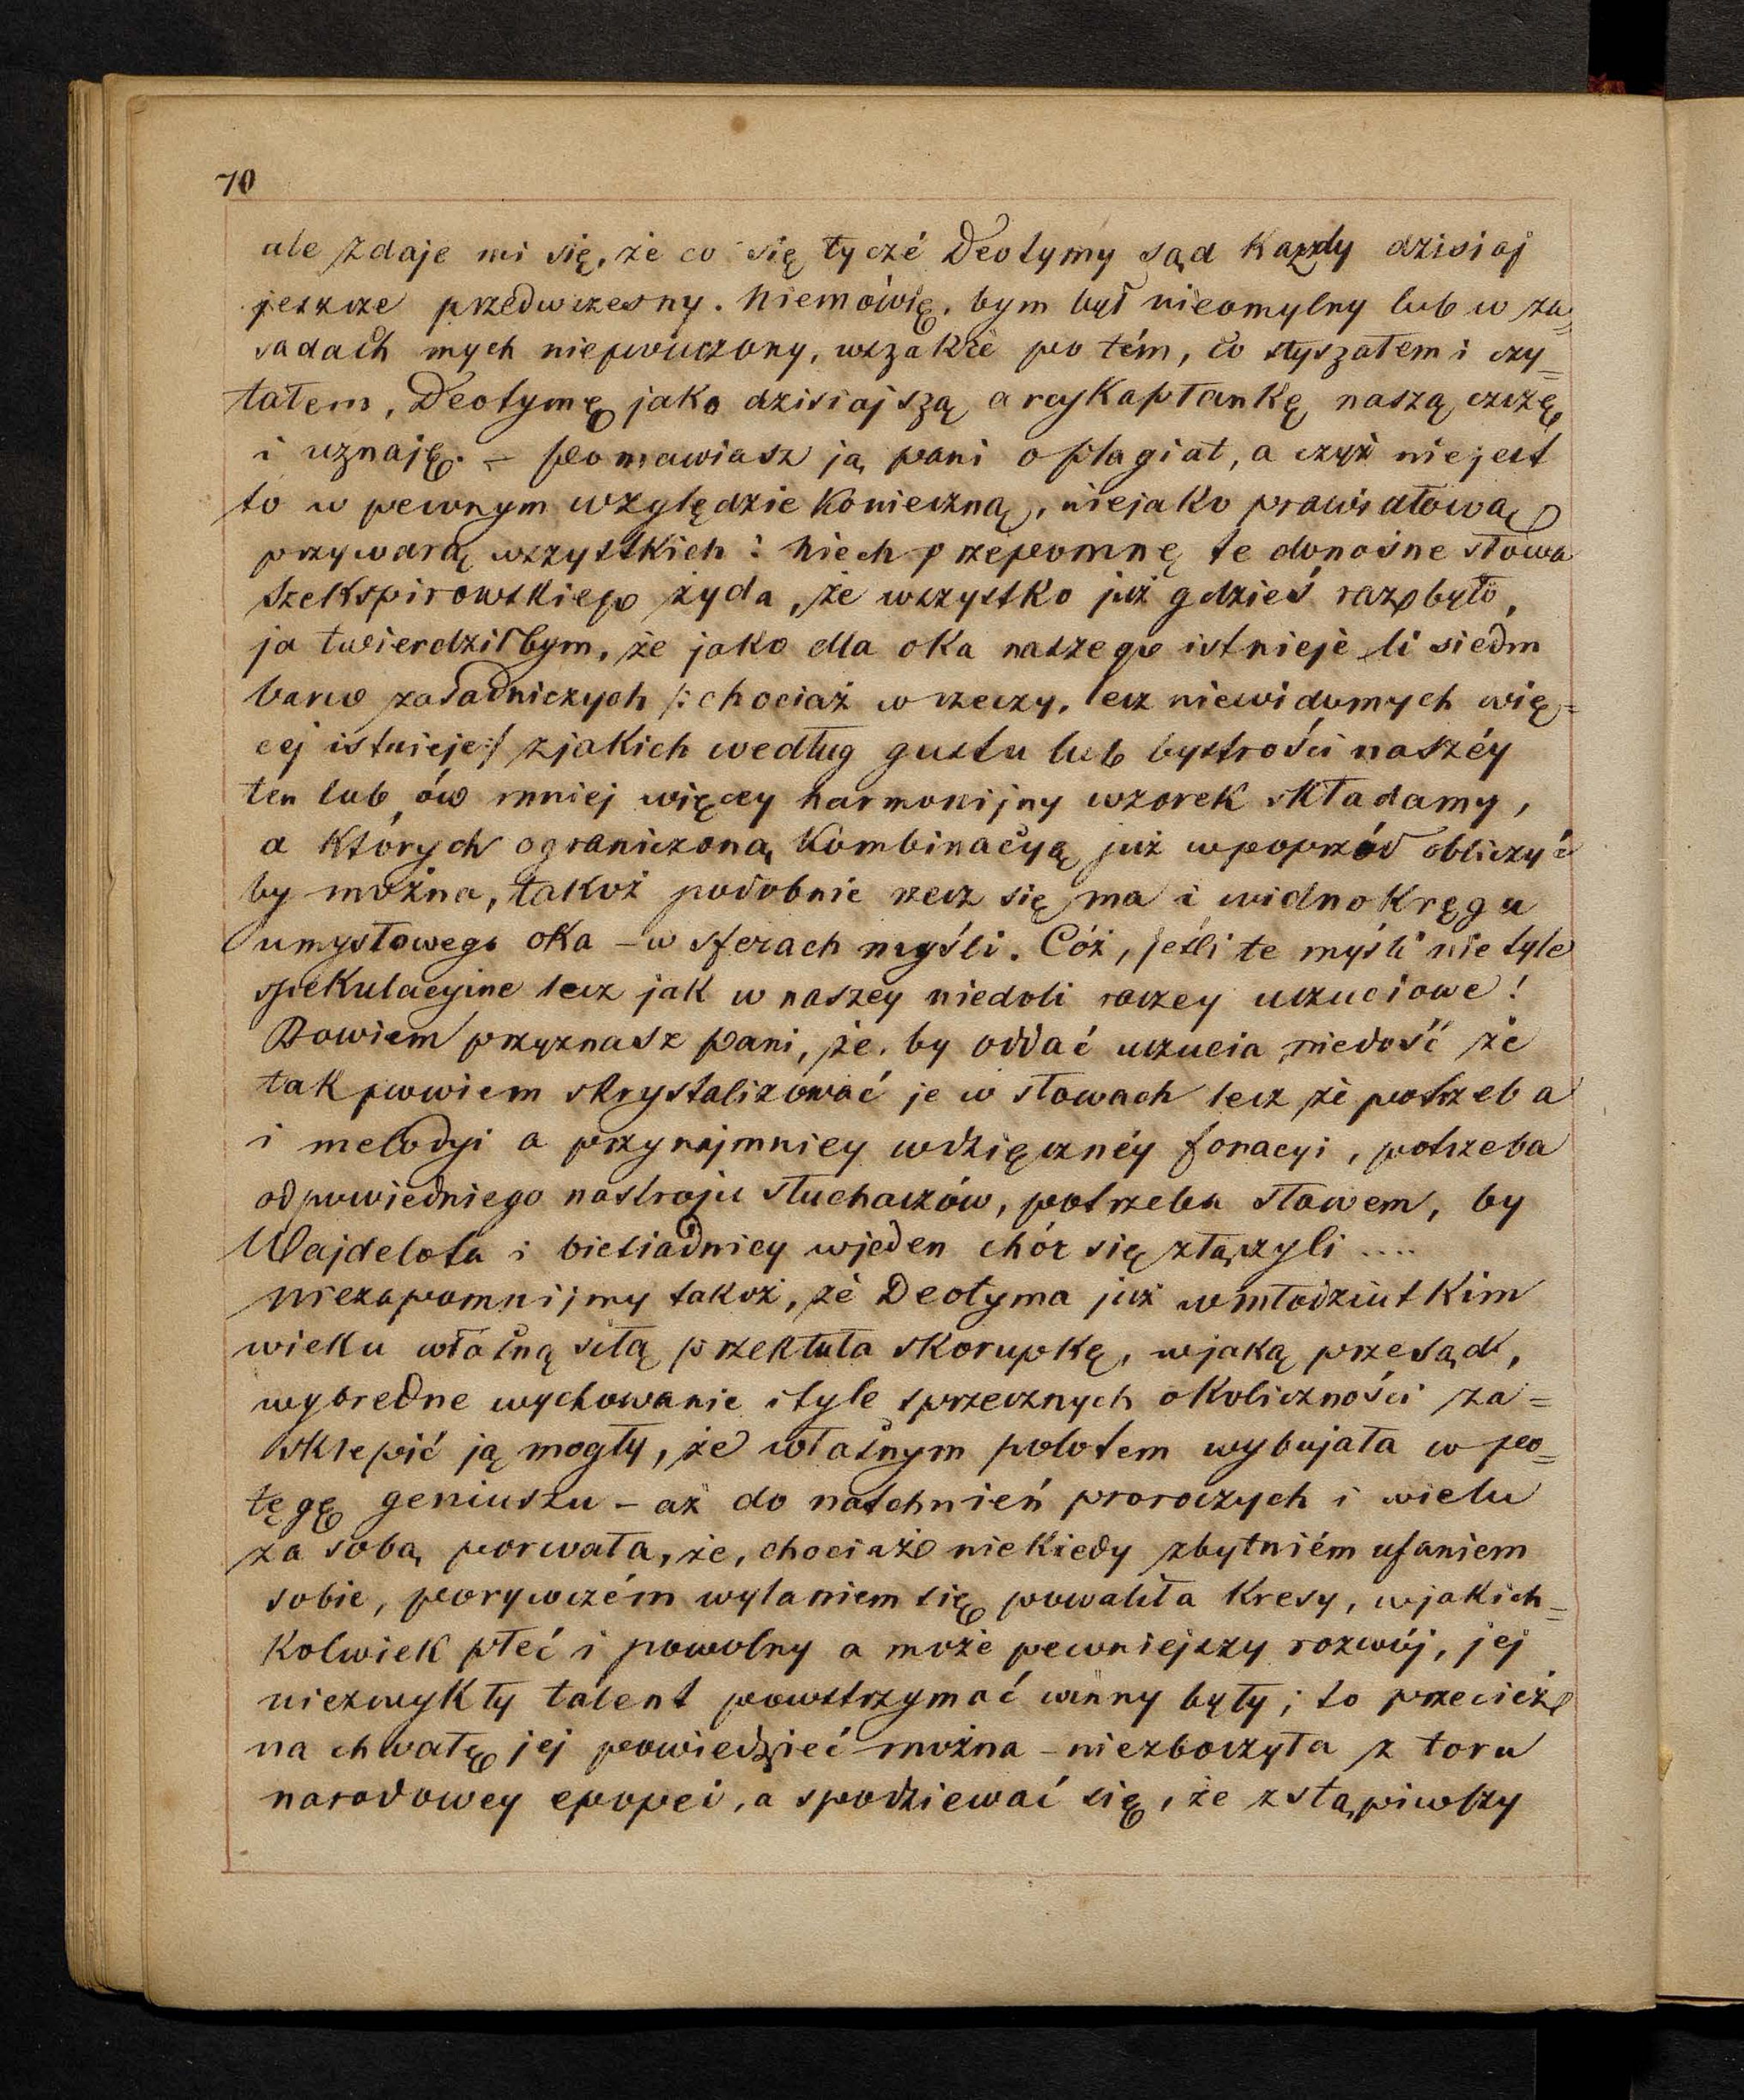 70
ale zdaje mi się, że co się tyczé Deotymy sąd każdy dzisiaj
jeszcze przedwczesny. Niemówię, bym był nieomylny lub w za=
sadach mych niepouczony, wszakże po tém, co słyszałem i czy=
tałem, Deotymę jako dzisiajszą arcykapłankę naszą czczę
i uznaję. – Pomawiasz ją pani o plagiat, a czyż niejest
to w pewnym względzie konieczną, niejako prawidłową
przywarą wszystkich: Niech przepomnę te donośne słowa
Szekspirowskiego żyda, że wszystko już gdzieś raz było,
ja twierdziłbym, że jako dla oka naszego istnieje li siedm
barw zasadniczych /: chociaż w rzeczy, lecz niewidomych wię=
cej istnieje :/ zjakich według gustu lub bystrości naszéy
ten lub ów mniej więcey harmonijny wzorek składamy,
a których ograniczoną kombinacyą już wpoprzód obliczyć
by można, takoż podobnie rzecz się ma i widnokręgu
umysłowego oka – w sferach myśli. Cóż, jeśli te myśli nie tyle
spekulacyjne lecz jak w naszey niedoli raczey uczuciowe!
Bowiem przyznasz pani, że, by oddać uczucia niedość że
tak powiem skrystalizować je w słowach lecz że potrzeba
i melodyi a przynajmniey wdzięcznéy fonacyi, potrzeba
odpowiedniego nastroju słuchaczów, potrzeba słowem, by
Wajdelota i biesiadnicy wjeden chór się złączyli ....
Niezapomnijmy takoż, że Deotyma już wmłodziutkim
wieku własną siłą przekłuła skorupkę, wjaką przesąd,
wybredne wychowanie i tyle sprzecznych okoliczności za=
sklepić ją mogły, że własnym polotem wybujała w po=
tęgę geniuszu – aż do natchnień proroczych i wielu
za sobą porwała, że, chociaż niekiedy zbytniém ufaniem
sobie, porywczém wylaniem się powaliła kresy, wjakich=
kolwiek płeć i powolny a może pewniejszy rozwój, jej
niezwykły talent powstrzymać winny były; to przecież
na chwałę jej powiedzieć można – niezboczyła z toru
narodowey epopei, a spodziewać się, że zstąpiwszy